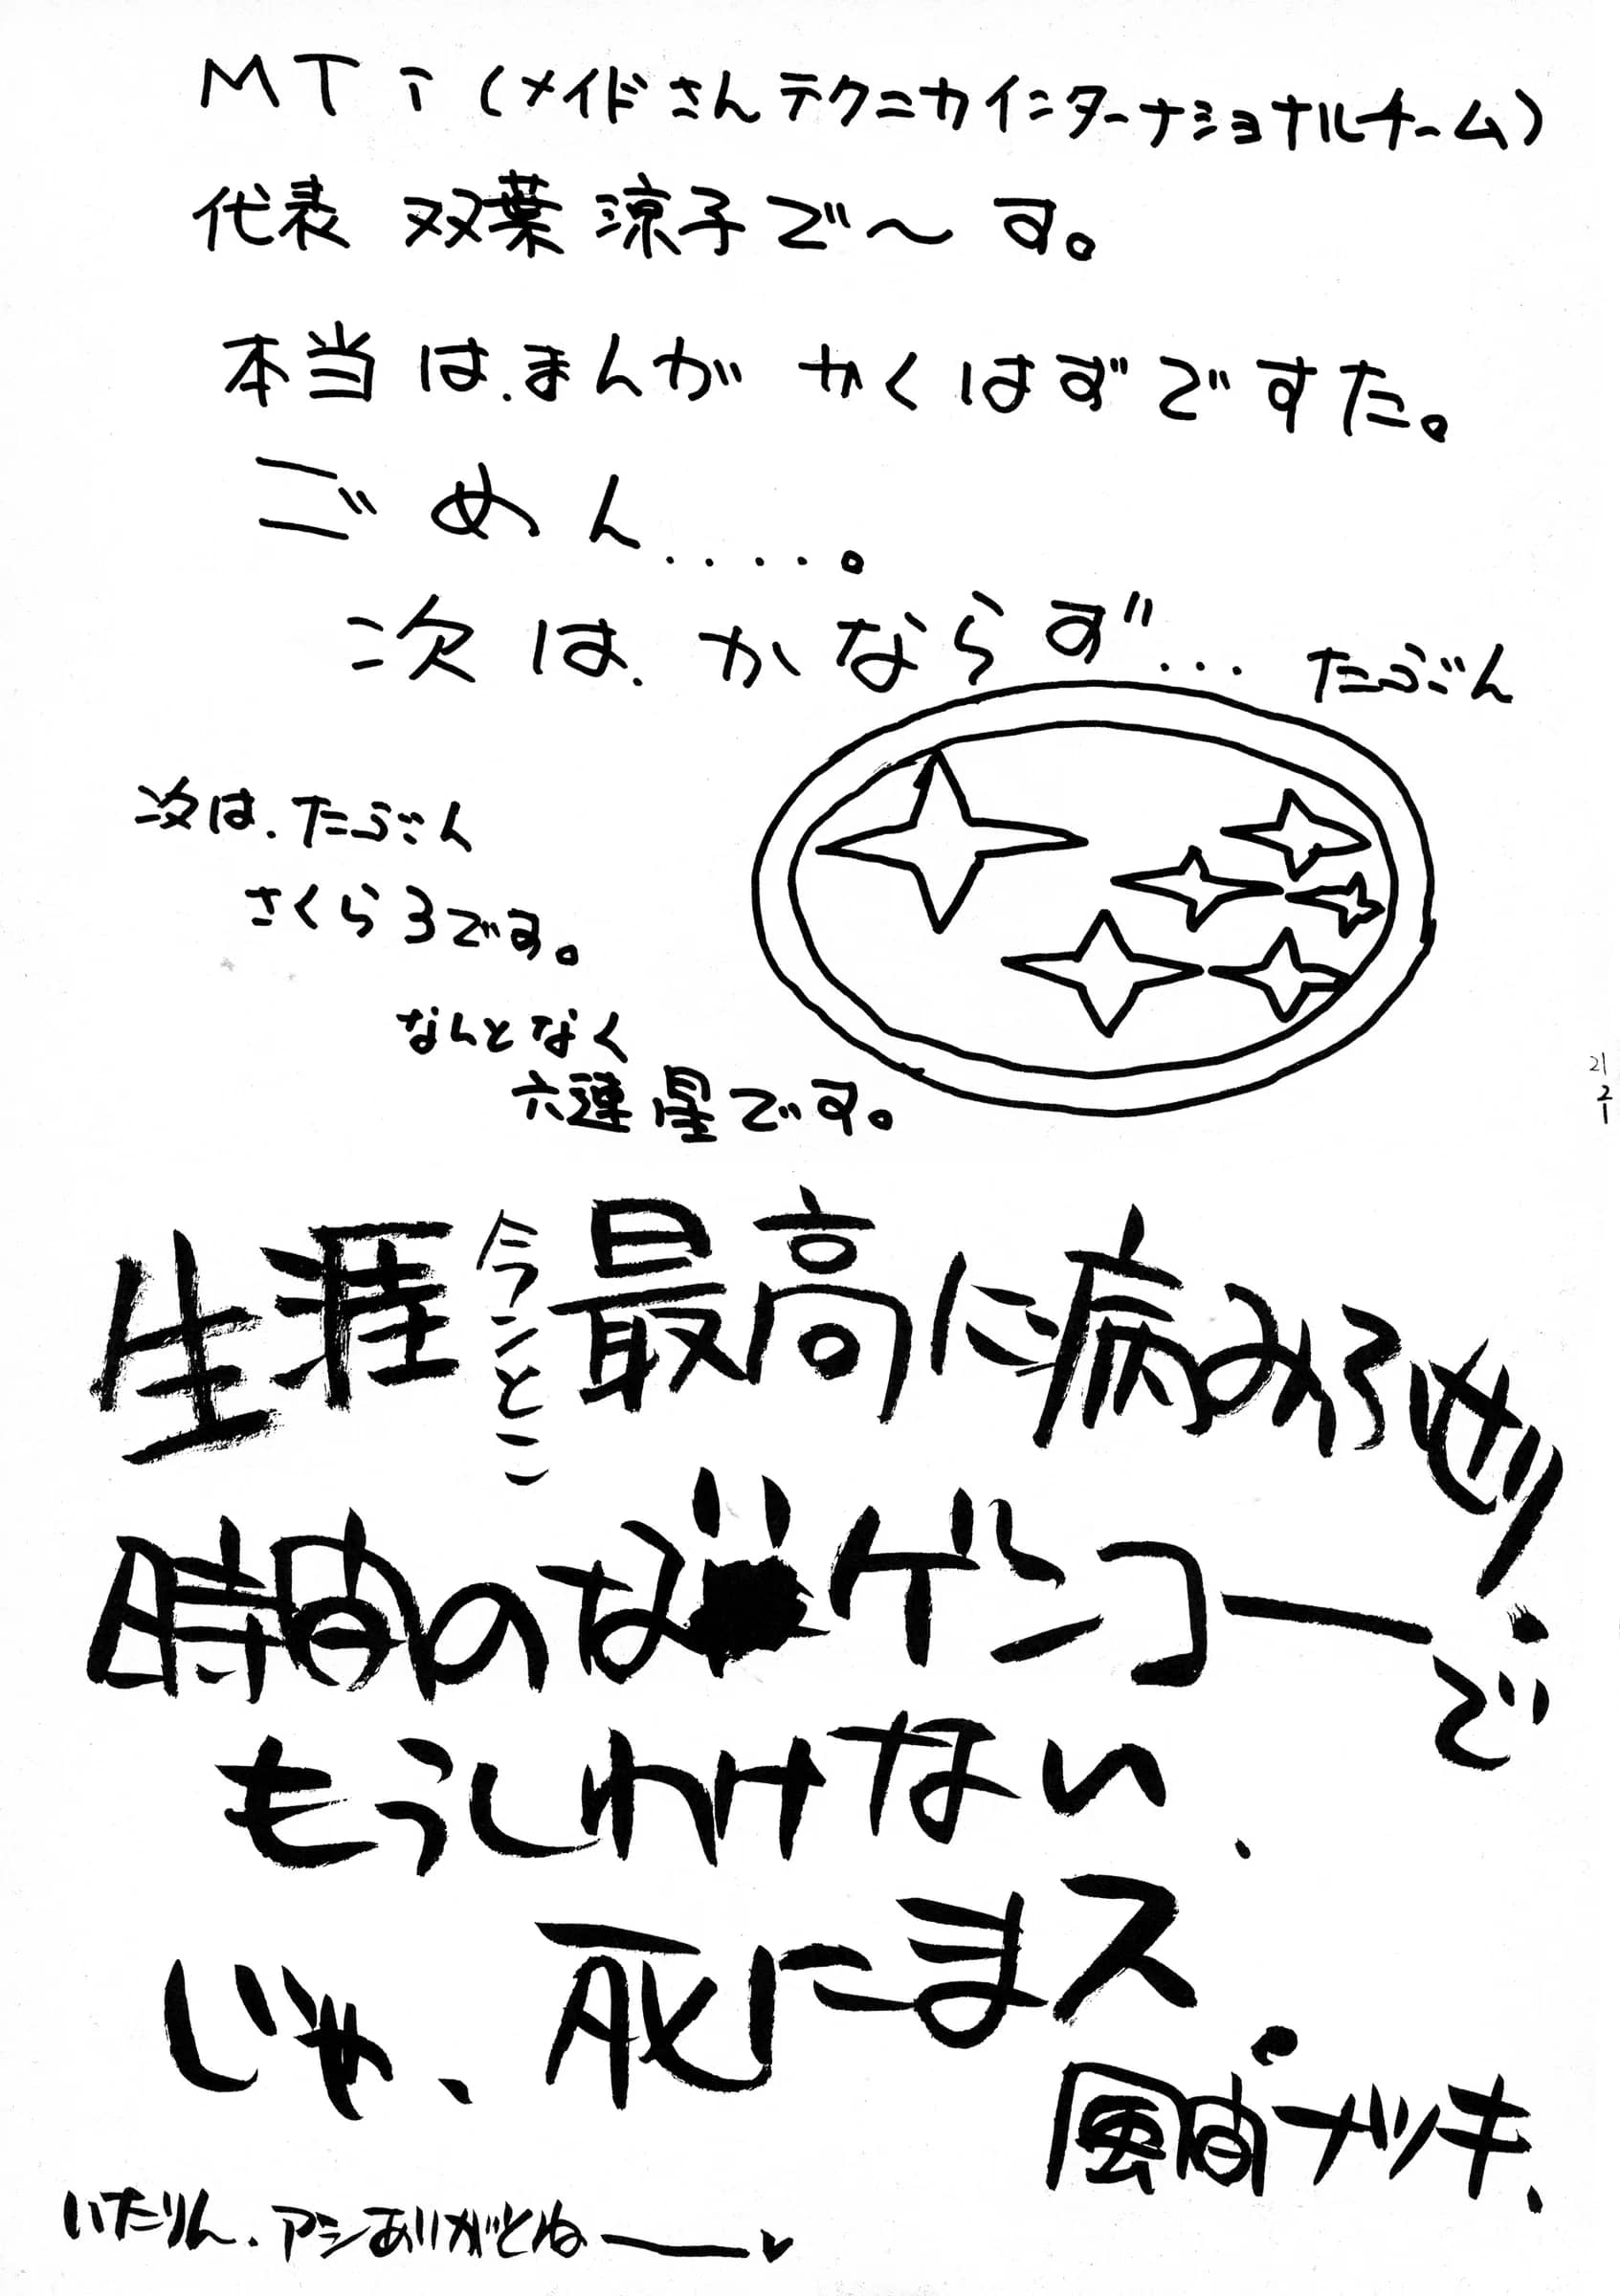 MTi（メイドさんテクニカインターナショナルチーム）
代表 双葉 涼子で〜す。
本当は.まんが かくはずですた。
ごめん.....。
次は.かならず... たぶん
次は.たぶん
さくら3です。
なんとなく
六連星です。
生涯今んとこ最高に病みろせり!
時間のなゲンコーで
もうしわけない.
じゃ、死にまス.
風間ナツキ.
いたりん.アシありがとね——♥
21
21